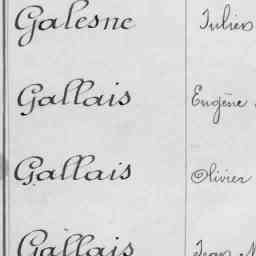 Galesne Julien
Gallais Eugène
Gallais Olivier
Gallais Jean